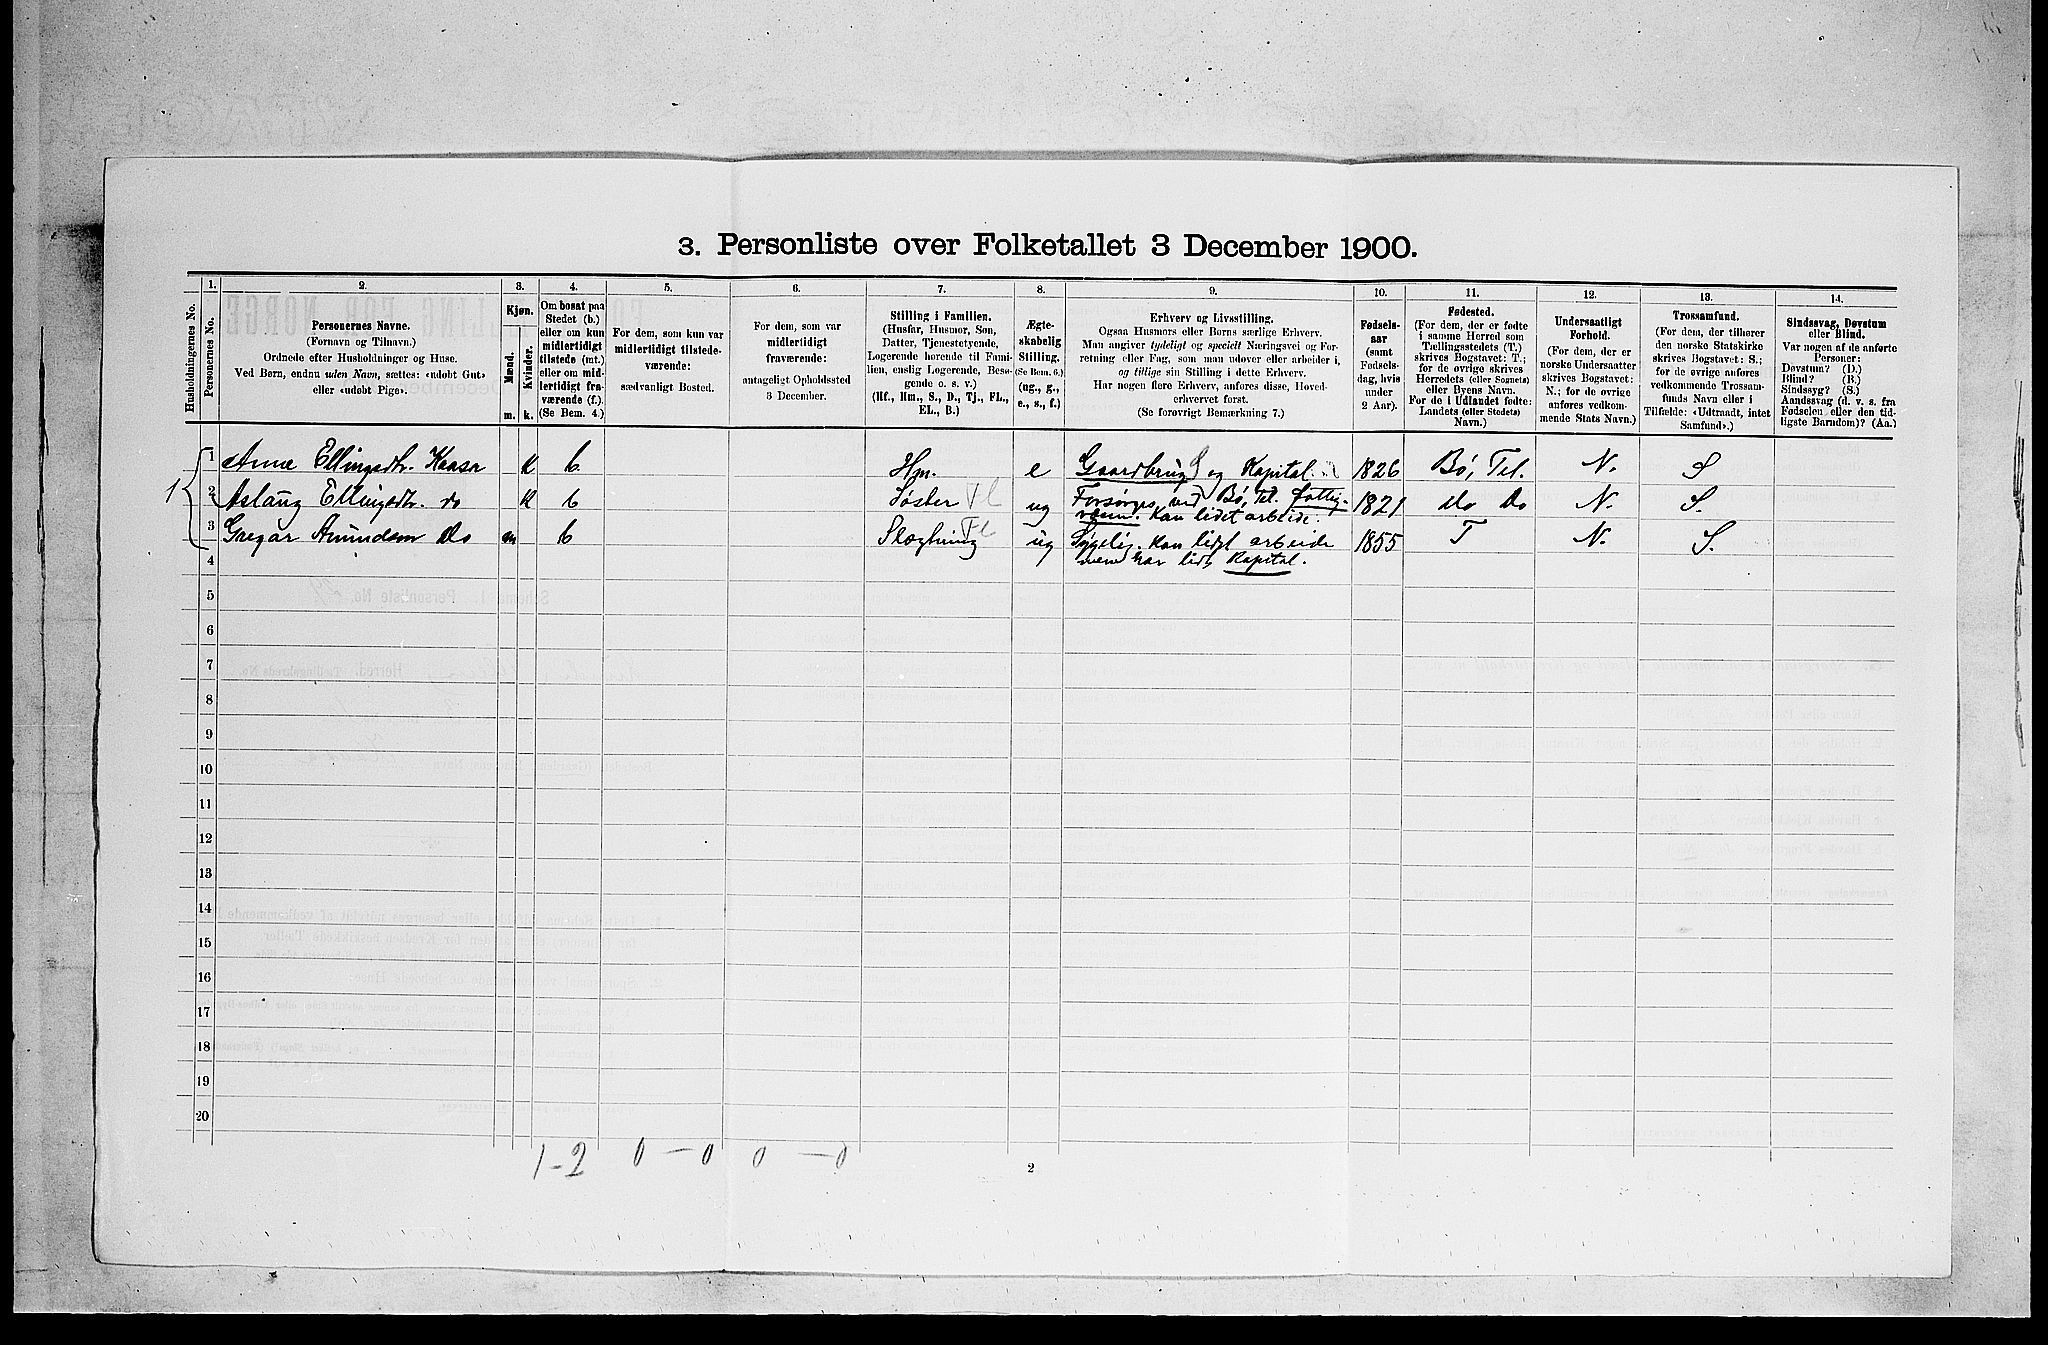 3. Personliste over Folketallet 3 December 1900.
Husholdningernes No.
1.
Personernes No.
2.
Personernes Navne.
(Fornavn og Tilnavn.)
Ordnede efter Husholdninger og Huse.
Ved Børn, endnu uden Navn, sættes: «udøbt Gut»
eller «udøbt Pige».
3.
Kjøn.
Mænd.
Kvinder.
m.
k.
4.
Om bosat paa
Stedet (b.)
eller om kun
midlertidigt
tilstede (mt.)
eller om mid-
lertidigt fra-
værende (f.).
(Se Bem. 4.)
5.
For dem, som kun var
midlertidigt tilstede-
værende:
sædvanligt Bosted.
6.
For dem, som var
midlertidigt
fraværende:
antageligt Opholdssted
3 December.
7.
Stilling i Familien.
(Husfar, Husmor, Søn,
Datter, Tjenestetyende,
Logerende hørende til Fami-
lien, enslig Logerende, Besø-
gende o. s. v.)
(Hf., Hm., S., D., Tj., FL.,
EL., B.)
8.
Ægte-
skabelig
Stilling.
(Se Bem. 6.)
(ug., g.,
e., s., f.)
9.
Erhverv og Livsstilling.
Ogsaa Husmors eller Børns særlige Erhverv.
Man angiver tydeligt og specielt Næringsvei og For-
retning eller Fag, som man udover eller arbeider i,
og tillige sin Stilling i dette Erhverv.
Har nogen flere Erhverv, anføres disse, Hoved-
erhvervet først.
(Se forøvrigt Bemærkning 7.)
10.
Fødsels-
aar
(samt
Fødsels-
dag, hvis
under
2 Aar).
11.
Fødested.
(For dem, der er fødte
i samme Herred som
Tællingsstedets (T.)
skrives Bogstavet: T.;
for de øvrige skrives
Herredets (eller Sognets)
eller Byens Navn.
For de i Udlandet fødte:
Landets (eller Stedets)
Navn.)
12.
Undersaatligt
Forhold.
(For dem, der er
norske Undersaatter
skrives Bogstavet:
N.; for de øvrige
anføres vedkom-
mende Stats Navn.)
13.
Trossamfund.
(For dem, der tilhører
den norske Statskirke
skrives Bogstavet: S.;
for de øvrige anføres
vedkommende Trossam-
funds Navn eller i
Tilfælde: «Udtraadt, intet
Samfund».)
14.
Sindssvag, Døvstum
eller Blind.
Var nogen af de anførte
Personer:
Døvstum? (D.)
Blind? (B.)
Sindssyg? (S.)
Aandssvag (d. v. s. fra
Fødselen eller den tid-
ligste Barndom)? (Aa.)
1 1 Anne Ellingsdtr. Kaasa k b Hm. e Gaardbrug og Kapital 1826 Bø, Tel. N. S
2 Aslaug Ellingsdtr. do k b Søster Fl ug Forsørges ved Bø, Tel. fattig-
væsen. Kan lidet arbeide. 1821 do do N. S.
3 Gregar Amundsen Do m b Slægtning Fl ug Sygelig. Kan lidt arbeide 1855 T N. S.
4 men har lidt Kapital.
5
6
7
8
9
10
11
12
13
14
15
16
17
18
19
20
1-2 0-0 0-0
2